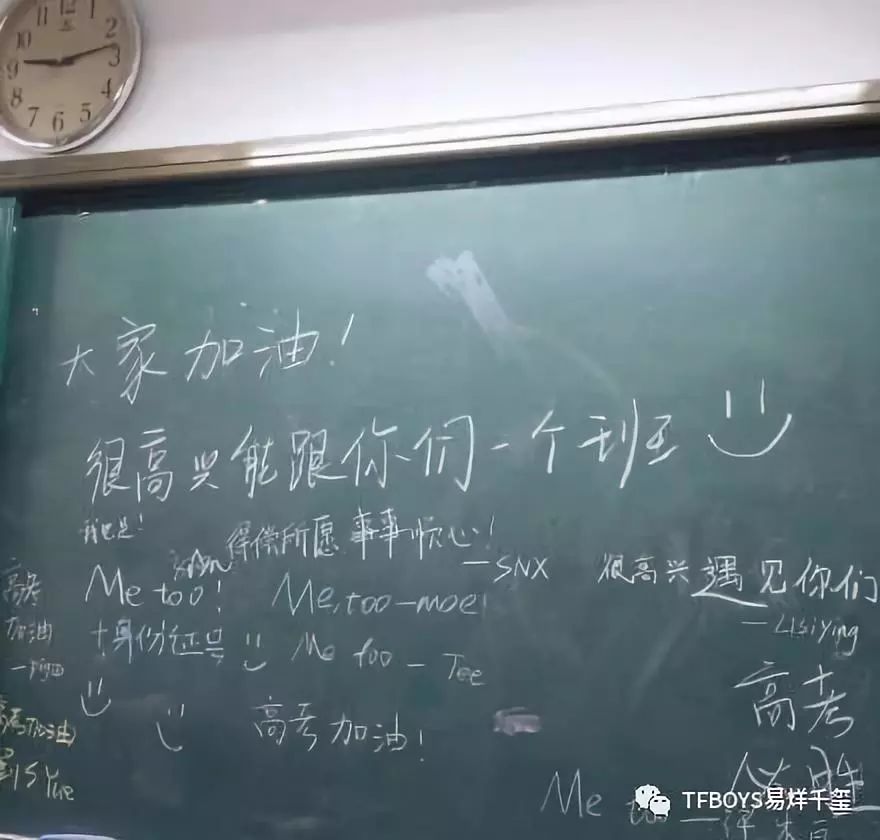 11 12 1
10 2
9 3
8 4
7 6 5
大家加油！
很高兴能跟你们一个班
我也是！
得偿所愿 事事顺心！
—SNX
很高兴遇见你们
—LiSiYing
Me too！
Me too—moe
高考
加油
+身份证号
Me too — Tee
高考加油！
高考加油
高考
必胜
Me too
TFBOYS易烊千玺